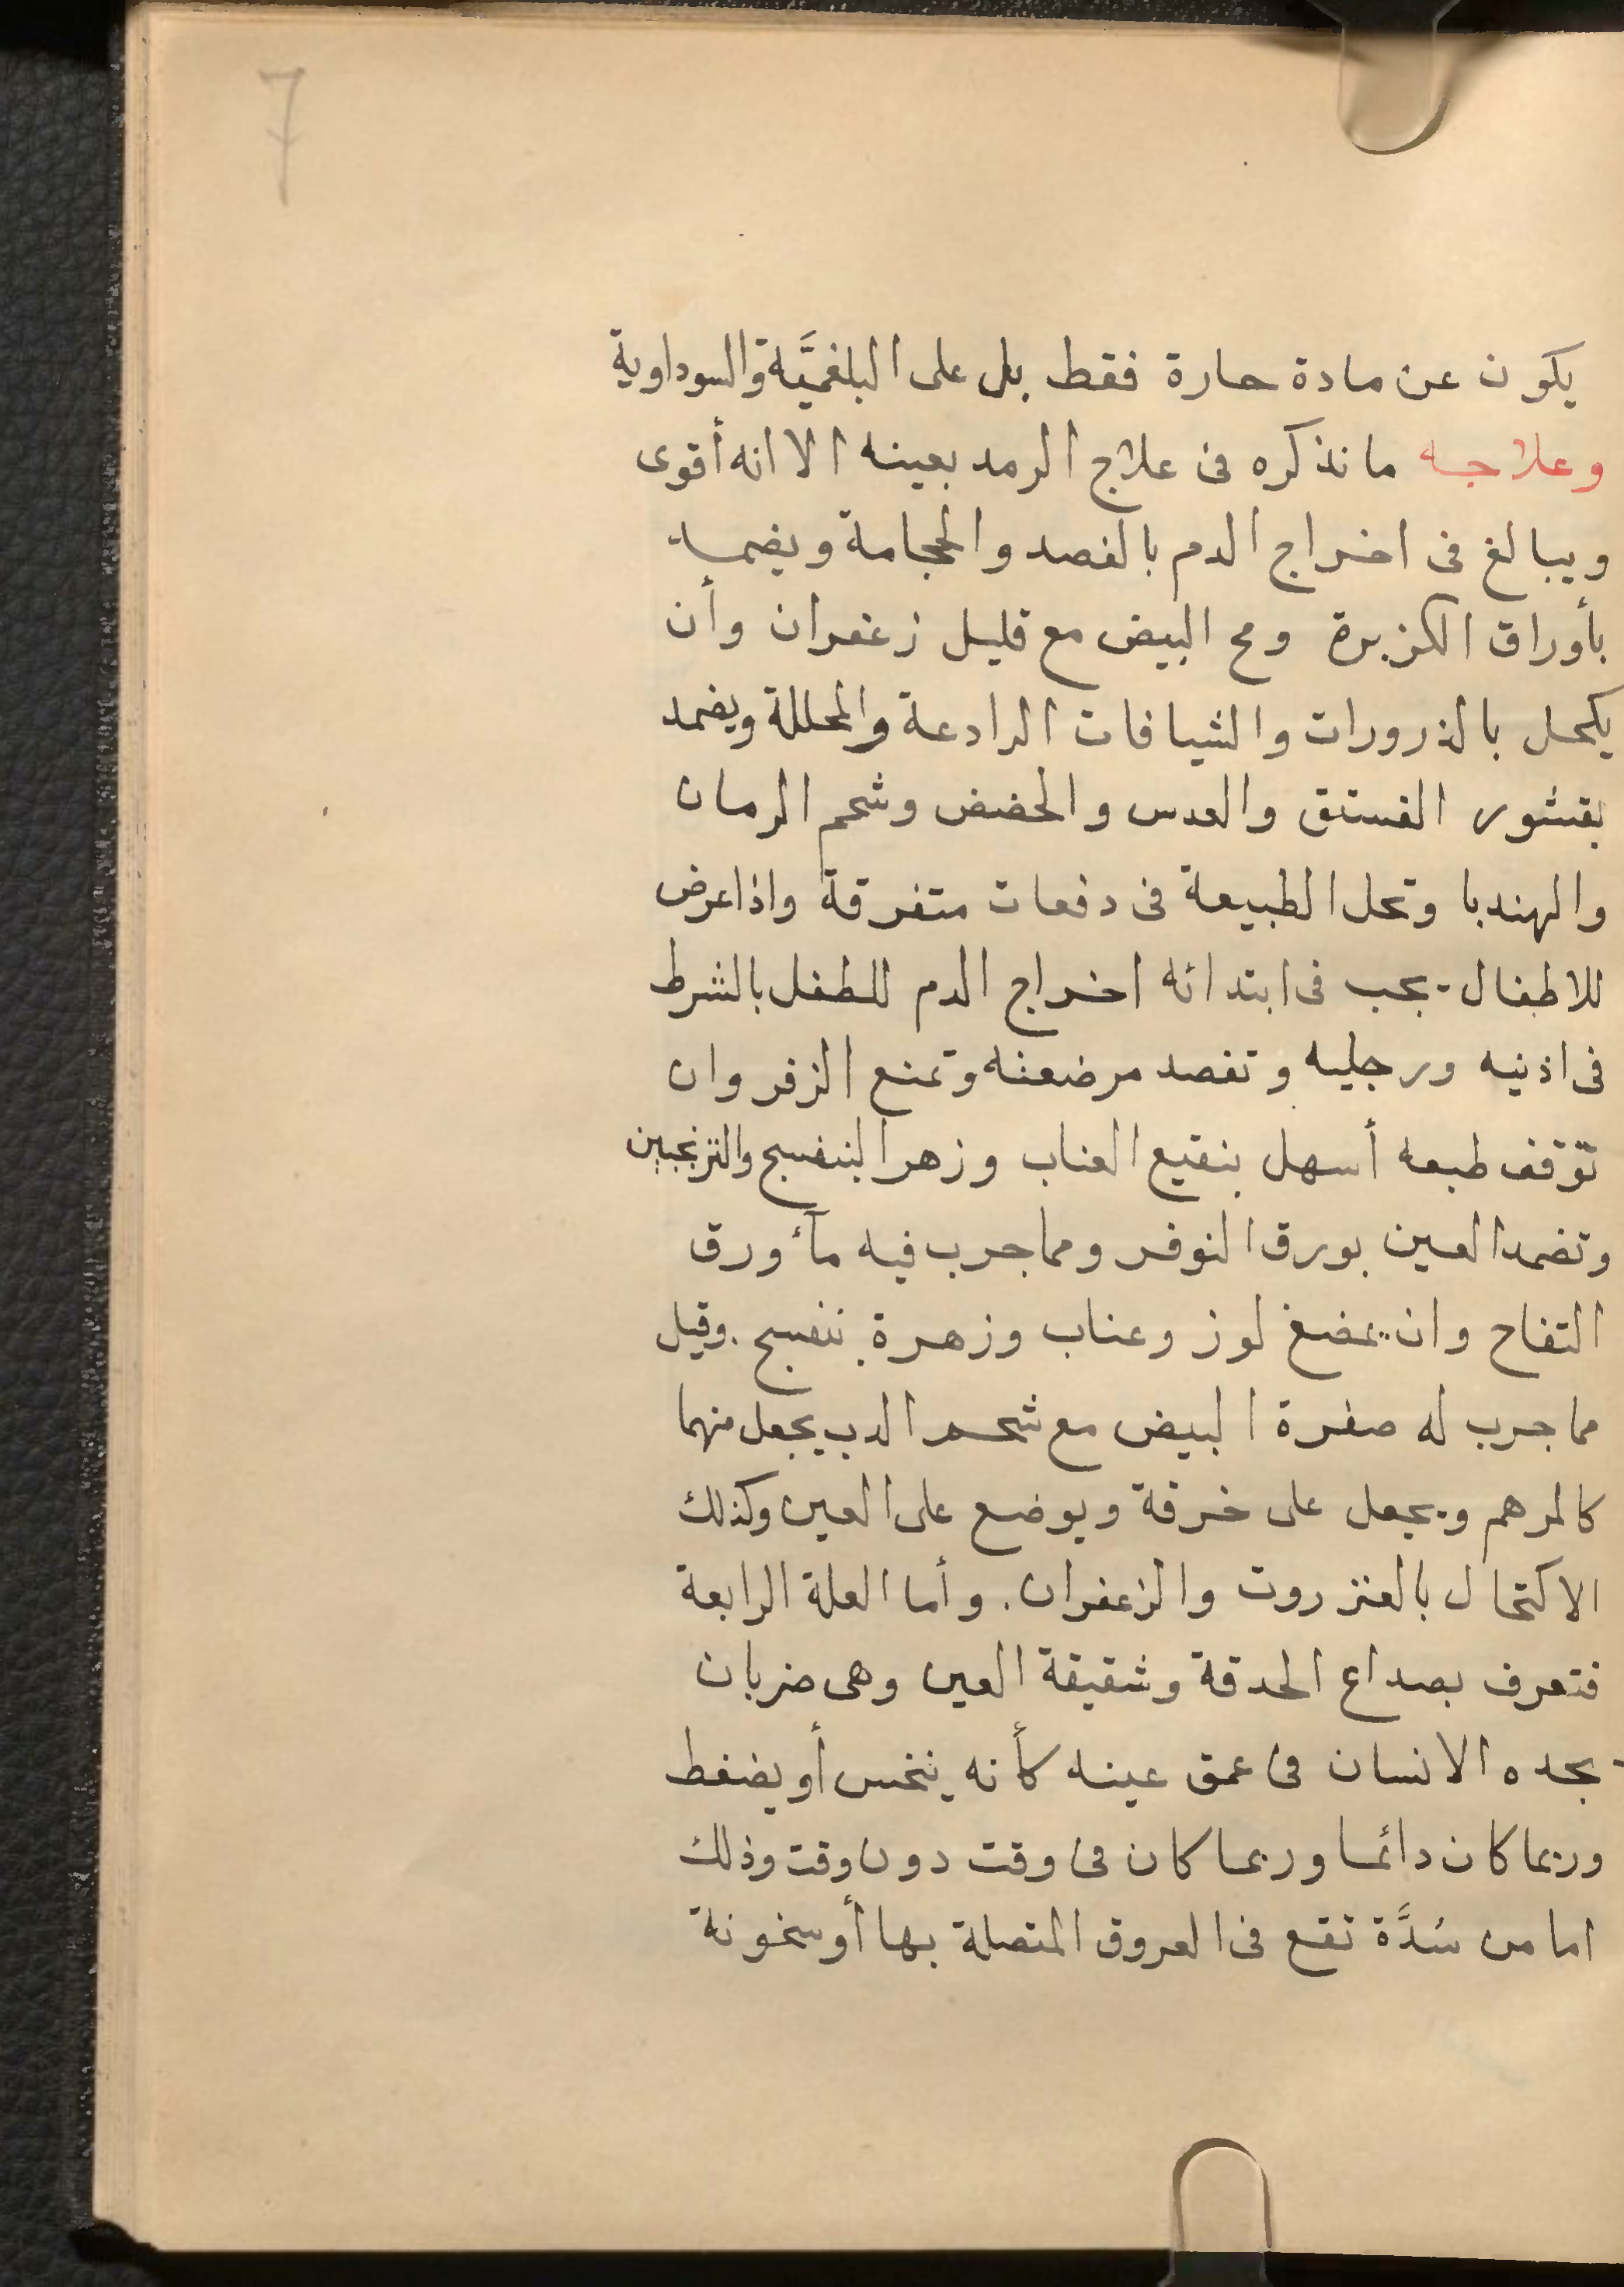 7
يكون عن مادة حارة فقط بل على البلغميَّة والسوداوية
وعلاجه ما نذكره فى علاج الرمد بعينه الا انه أقوى
ويبالغ فى اخراج الدم بالفصد والحجامة ويضمد
بأوراق الكزبرة ومح البيض مع قليل زعفران وأن
يكحل بالذرورات والشيافات الرادعة والمحللة ويضمد
بقشور الفستق والعدس والحضض وشحم الرمان
والهندبا وتحل الطبيعة فى دفعات متفرقة واذا عرض
للاطفال يجب فى ابتدائه اخراج الدم للطفل بالشرط
فى اذنيه ورجليه وتفصد مرضعته وتمنع الزفر وان
توّقف طبعه أسهل بنقيع العناب وزهر البنفسج والترنجبين
وتضمد العين بورق النوفر ومما جرب فيه مآء ورق
التفاح وان يمضغ لوز وعناب وزهرة بنفسج. وقيل
مما جرب له صفرة البيض مع شحم الدب يجعل منهما
كالمرهم ويجعل على خرقة ويوضع على العين وكذلك
الاكتحال بالعنزروت والزعفران. وأما العلة الرابعة
فتعرف بصداع الحدقة وشقيقة العين وهى ضربان
يجده الانسان فى عمق عينه كأنه ينخس أو يضغط
وربما كان دائما وربما كان فى وقت دون وقت وذلك
اما من سُدَّة تقع فى العروق المتصلة بها أو سخونة